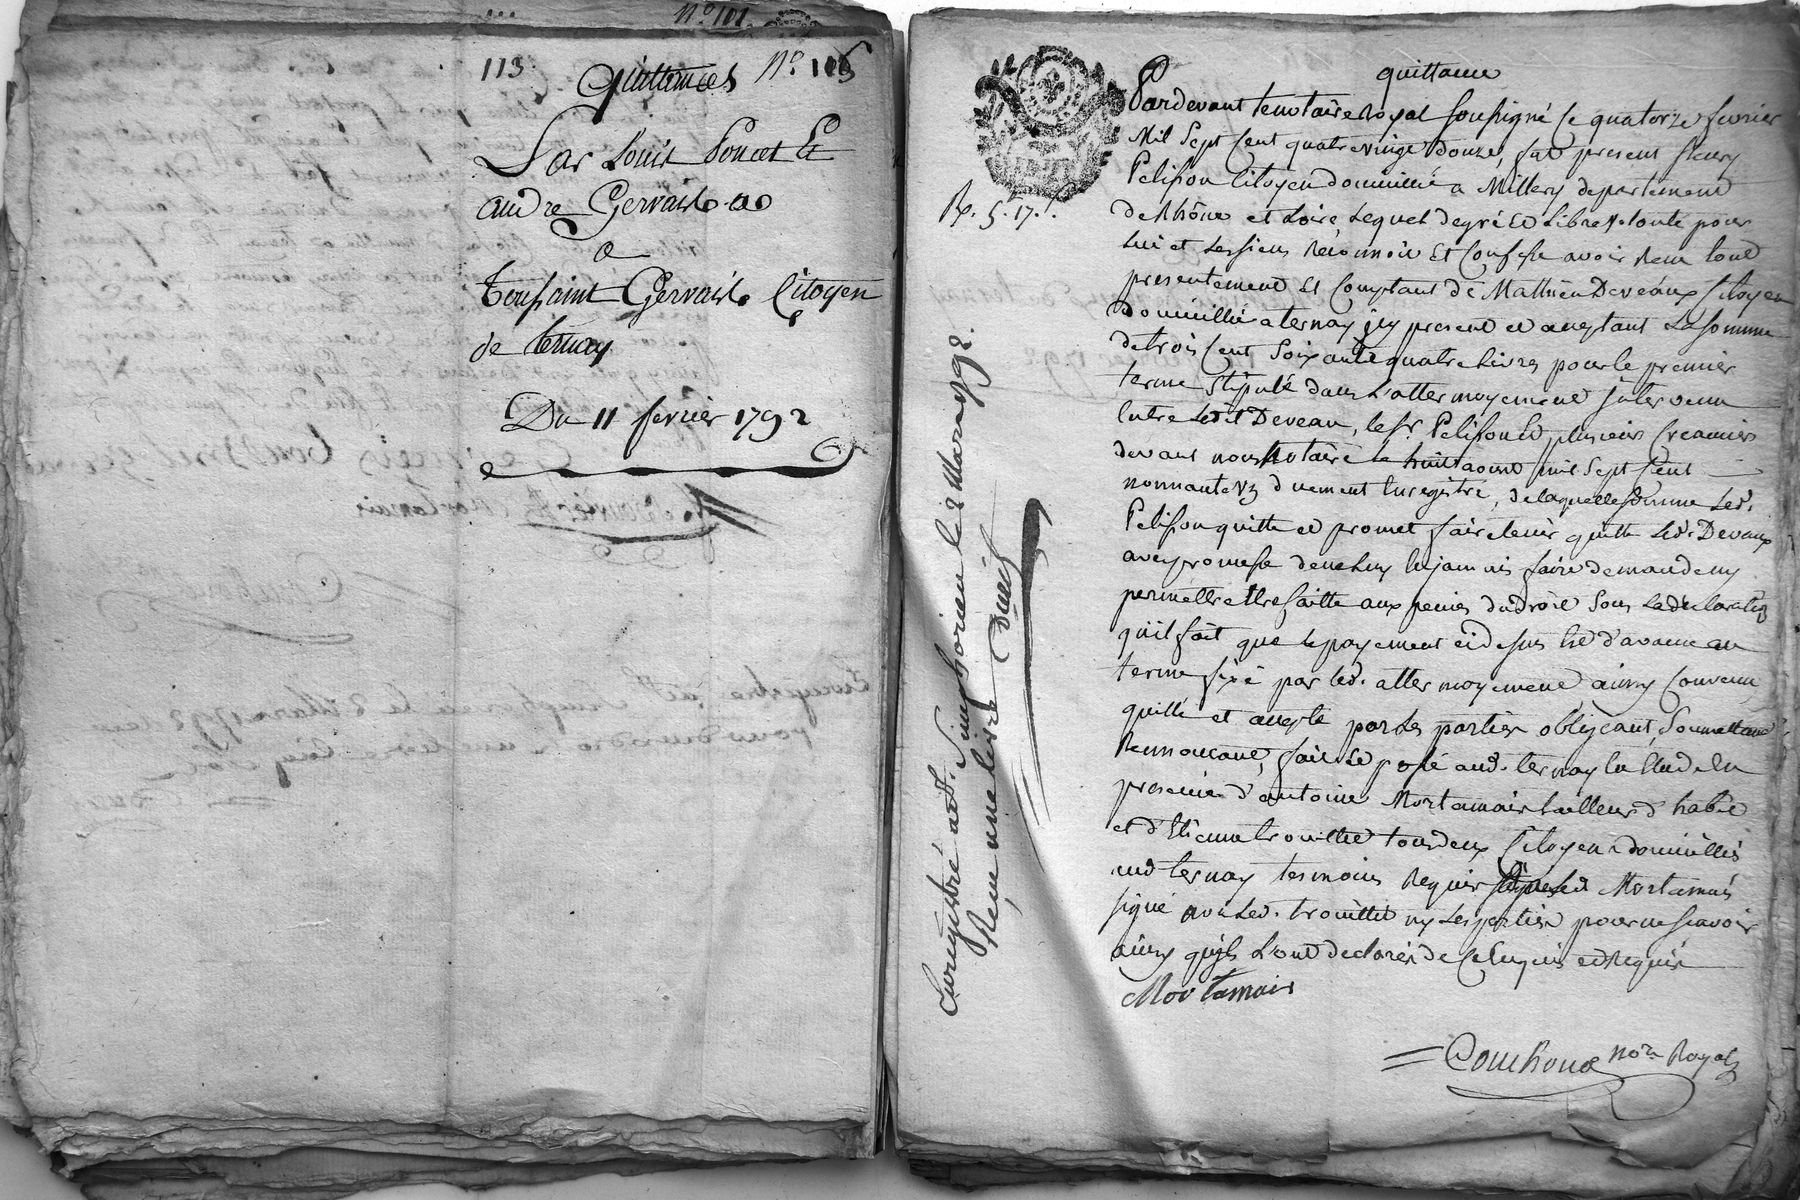 N° 101
113
N° 113
Quittances
Par Louis Poncet Et
andre Gervaise
a
Toussaint Gervais Citoyen
de ternay
Du 11 fevrier 1792
quittance
Pardevant le notaire Royal soussigné le quatorze fevrier
Mil Sept Cent quatre vingt Douze, fut present fleury
Pelisson Citoyen domicilié a Millery departement
de Rhône et Loire, Lequel de gré Et Libre volonté pour
Lui et Les siens Reconnoit Et Confesse avoir Recu tout
presentement Et Comptant de Mathieu Deveaux Citoyen
Domicillié a ternay icy present et aceptant La somme
de trois Cent Soixante quatre Livres pour le premier
terme stipulé dans L'attermoyement intervenu
Entre Ledit Deveau, le Sr. Pelisson Et plusieurs Creanciers
devant nous Notaire le huit aoust mil Sept Cent
nonnante un duement Enregistré, de laquelle somme Led.
Pelisson quitte et promet faire tenir quitte Led. Devaux
avec promesse de ne Luy En jamais faire demande ny
permettre Etre faitte aux peines du droit Sous La declaration
qu'il fait que le payement ci dessus Est d'avance au
terme fixé par led. attermoyement ainsy Convenu,
quitté et accepté par Les parties obligeant, Soumettant
Renonceant, fait Et passé aud. ternay En Etude En
presence d'antoine Mortamais tailleur d'habit
et d'Etienne trouillet tous deux Citoyens domicilliés
aud ternay temoins Requis Led Mortamais
signé non Led. trouillet ny Les parties pour ne sçavoir
ainsy qu'ils L'ont declarés de Ce Enquis et Requis
Mortamais
Couchoud no.re Royal
R. 5. 17. s.
Enregistré a St. Simphorien le 2 Mars 1792.
Recu une livre